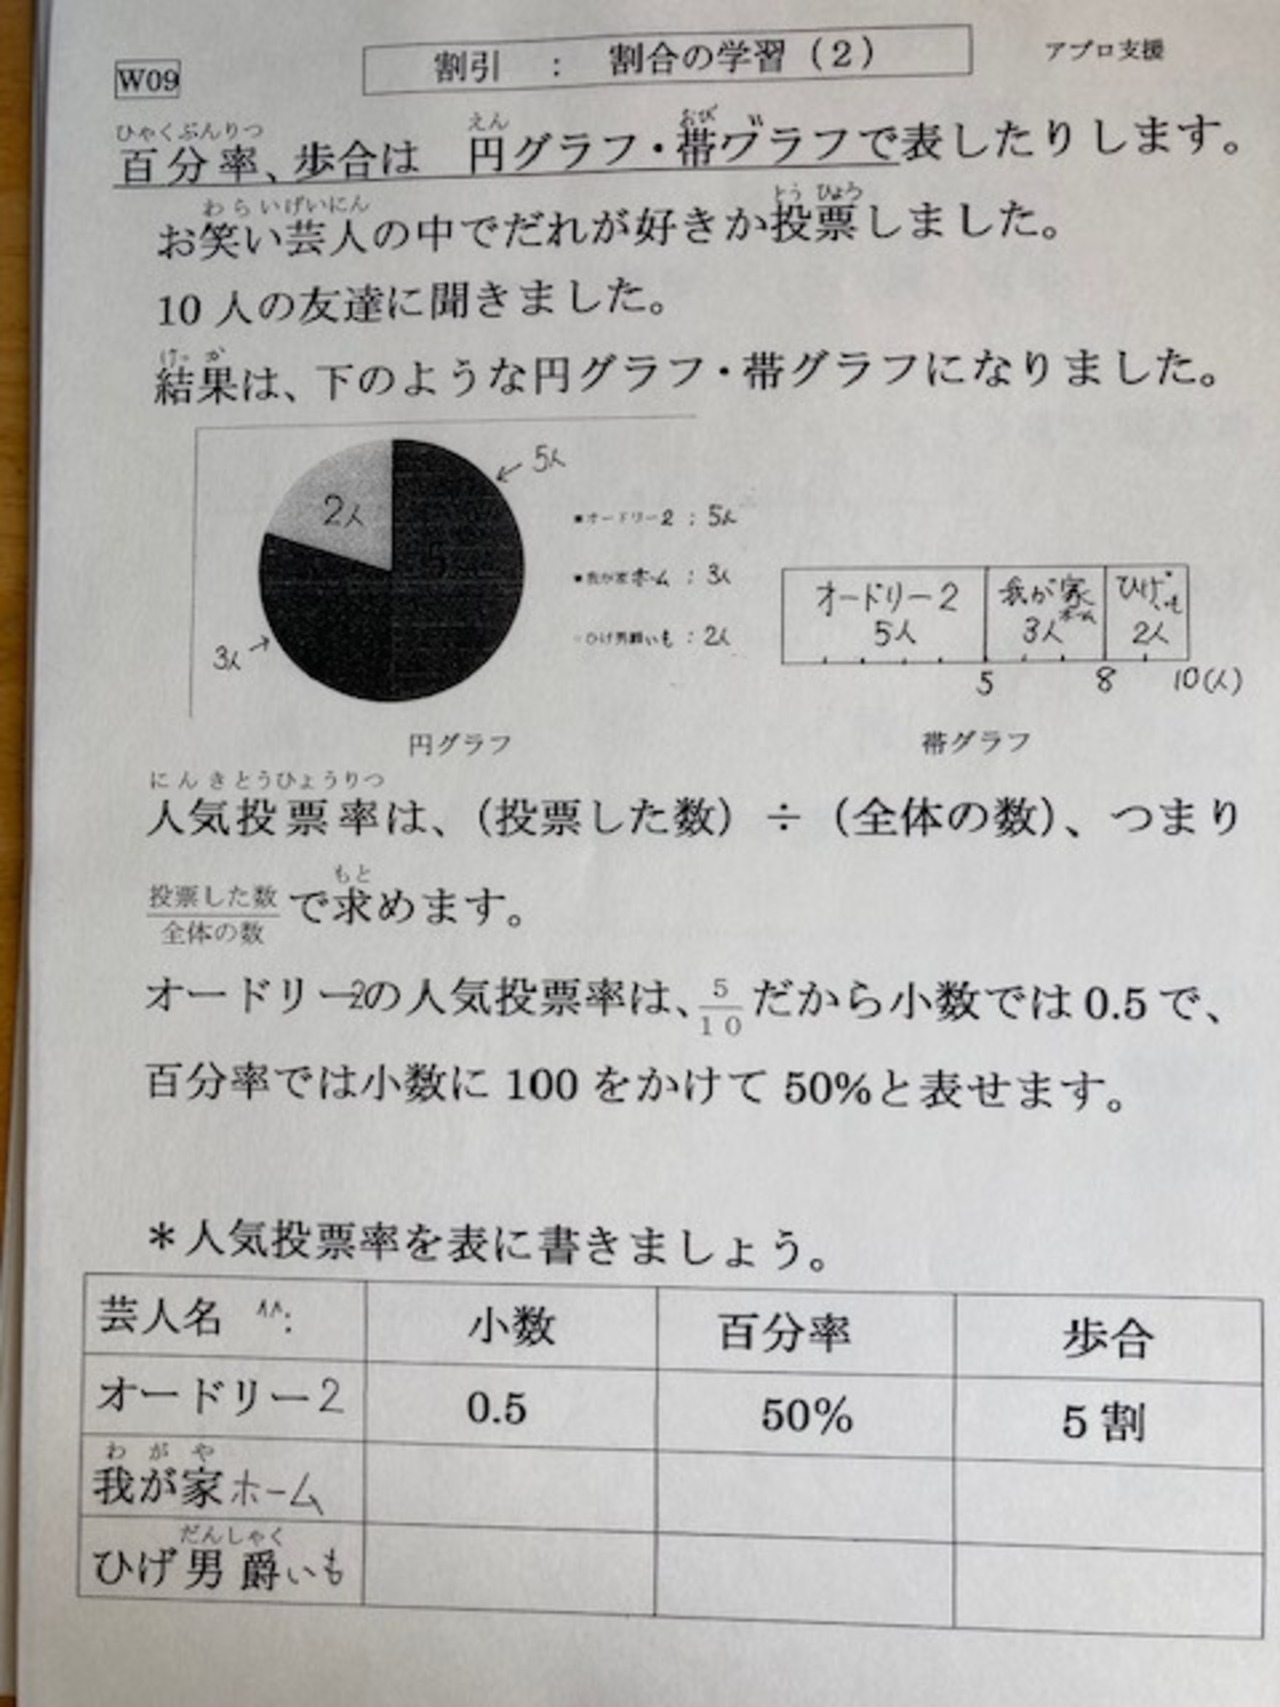 W09
割引 : 割合の学習(2)
アプロ支援
ひゃくぶんりつ えん おび
百分率、歩合は 円グラフ・帯グラフで表したりします。
わらいげいにん とう ひょう
お笑い芸人の中でだれが好きか投票しました。
10人の友達に聞きました。
けっ か
結果は、下のような円グラフ・帯グラフになりました。
5人
2人
3人
■オードリー2 : 5人
■我が家ホーム : 3人
ひげ男爵いも : 2人
円グラフ
オードリー2 我が家ホーム ひげ・いも
5人 3人 2人
5 8 10(人)
帯グラフ
にんきとうひょうりつ
人気投票率は、(投票した数) ÷ (全体の数)、つまり
もと
投票した数
全体の数
で求めます。
オードリー2の人気投票率は、5/10だから小数では0.5で、
百分率では小数に100をかけて50%と表せます。
*人気投票率を表に書きましょう。
芸人名 ^^: 小数 百分率 歩合
オードリー2 0.5 50% 5割
わ が や
我が家ホーム
だんしゃく
ひげ男爵いも